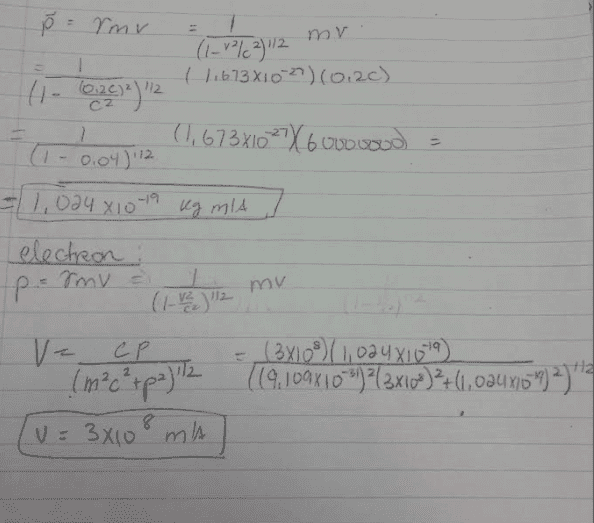 p⃗ = γmv = 1/(1-v²/c²)^1/2 mv
= 1/(1- (0.2c)²/c²)^1/2 (1.673x10^-27)(0.2c)
= 1/(1 - 0.04)^1/2 (1,673x10^-27)(60000000) =
= 1,024 x10^-19 kg m/s
electron:
p = γmv = 1/(1-v²/c²)^1/2 mv
V = cp/(m²c²+p²)^1/2 = (3x10^8)(1,024x10^-19)/((9,109x10^-31)²(3x10^8)²+(1,024x10^-19)²)^1/2
V = 3x10^8 m/s